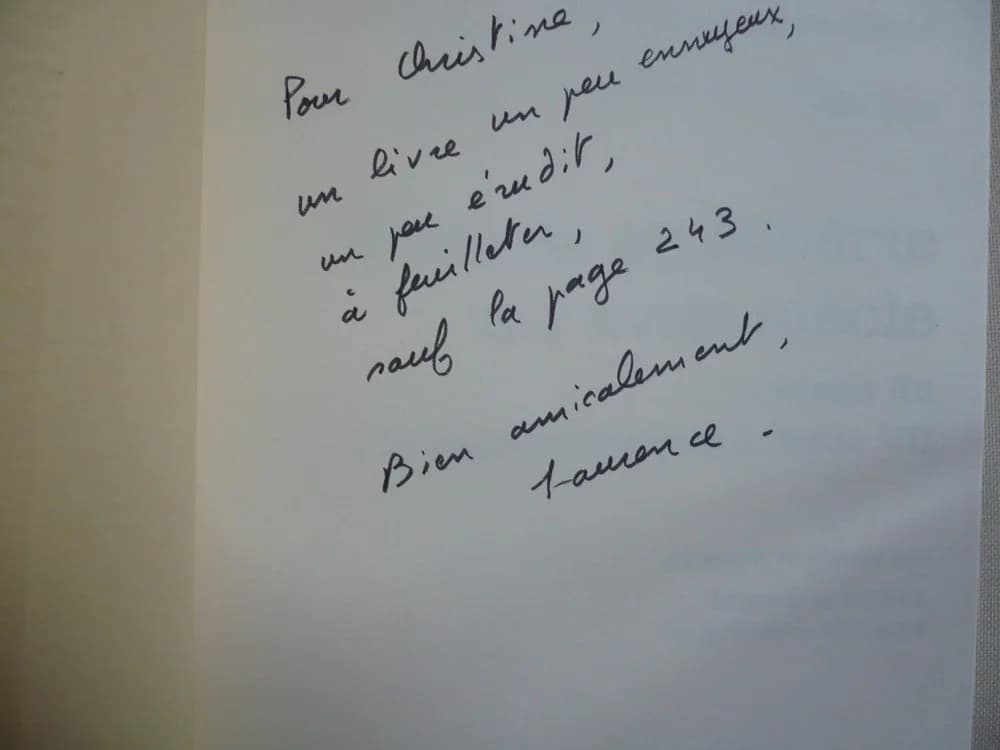 Pour Christine,
un livre un peu ennuyeux,
un peu érudit,
à feuilleter,
sauf la page 243.
Bien amicalement,
Laurence -